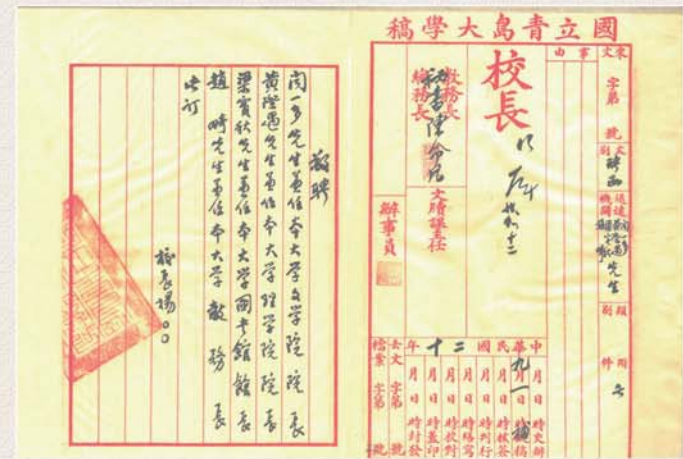 國立青島大學稿
來文 字第 號
事由
文別 聘函
送達機關 先生
類別
附件
校長
教務長
總務長
秘書陳命凡
文牘課主任
辦事員
中華民國二十年
月 日 時交辦
九月一日 時擬稿
月 日 時核簽
月 日 時判行
月 日 時繕寫
月 日 時校對
月 日 時蓋印
月 日 時封發
去文 字第 號
檔案 字第 號
敬聘
闻一多先生兼任本大学文学院院長
黄際遇先生兼任本大学理学院院長
梁實秋先生兼任本大学圖書館館長
趙畸先生兼任本大学教務長
此訂
校長楊○○